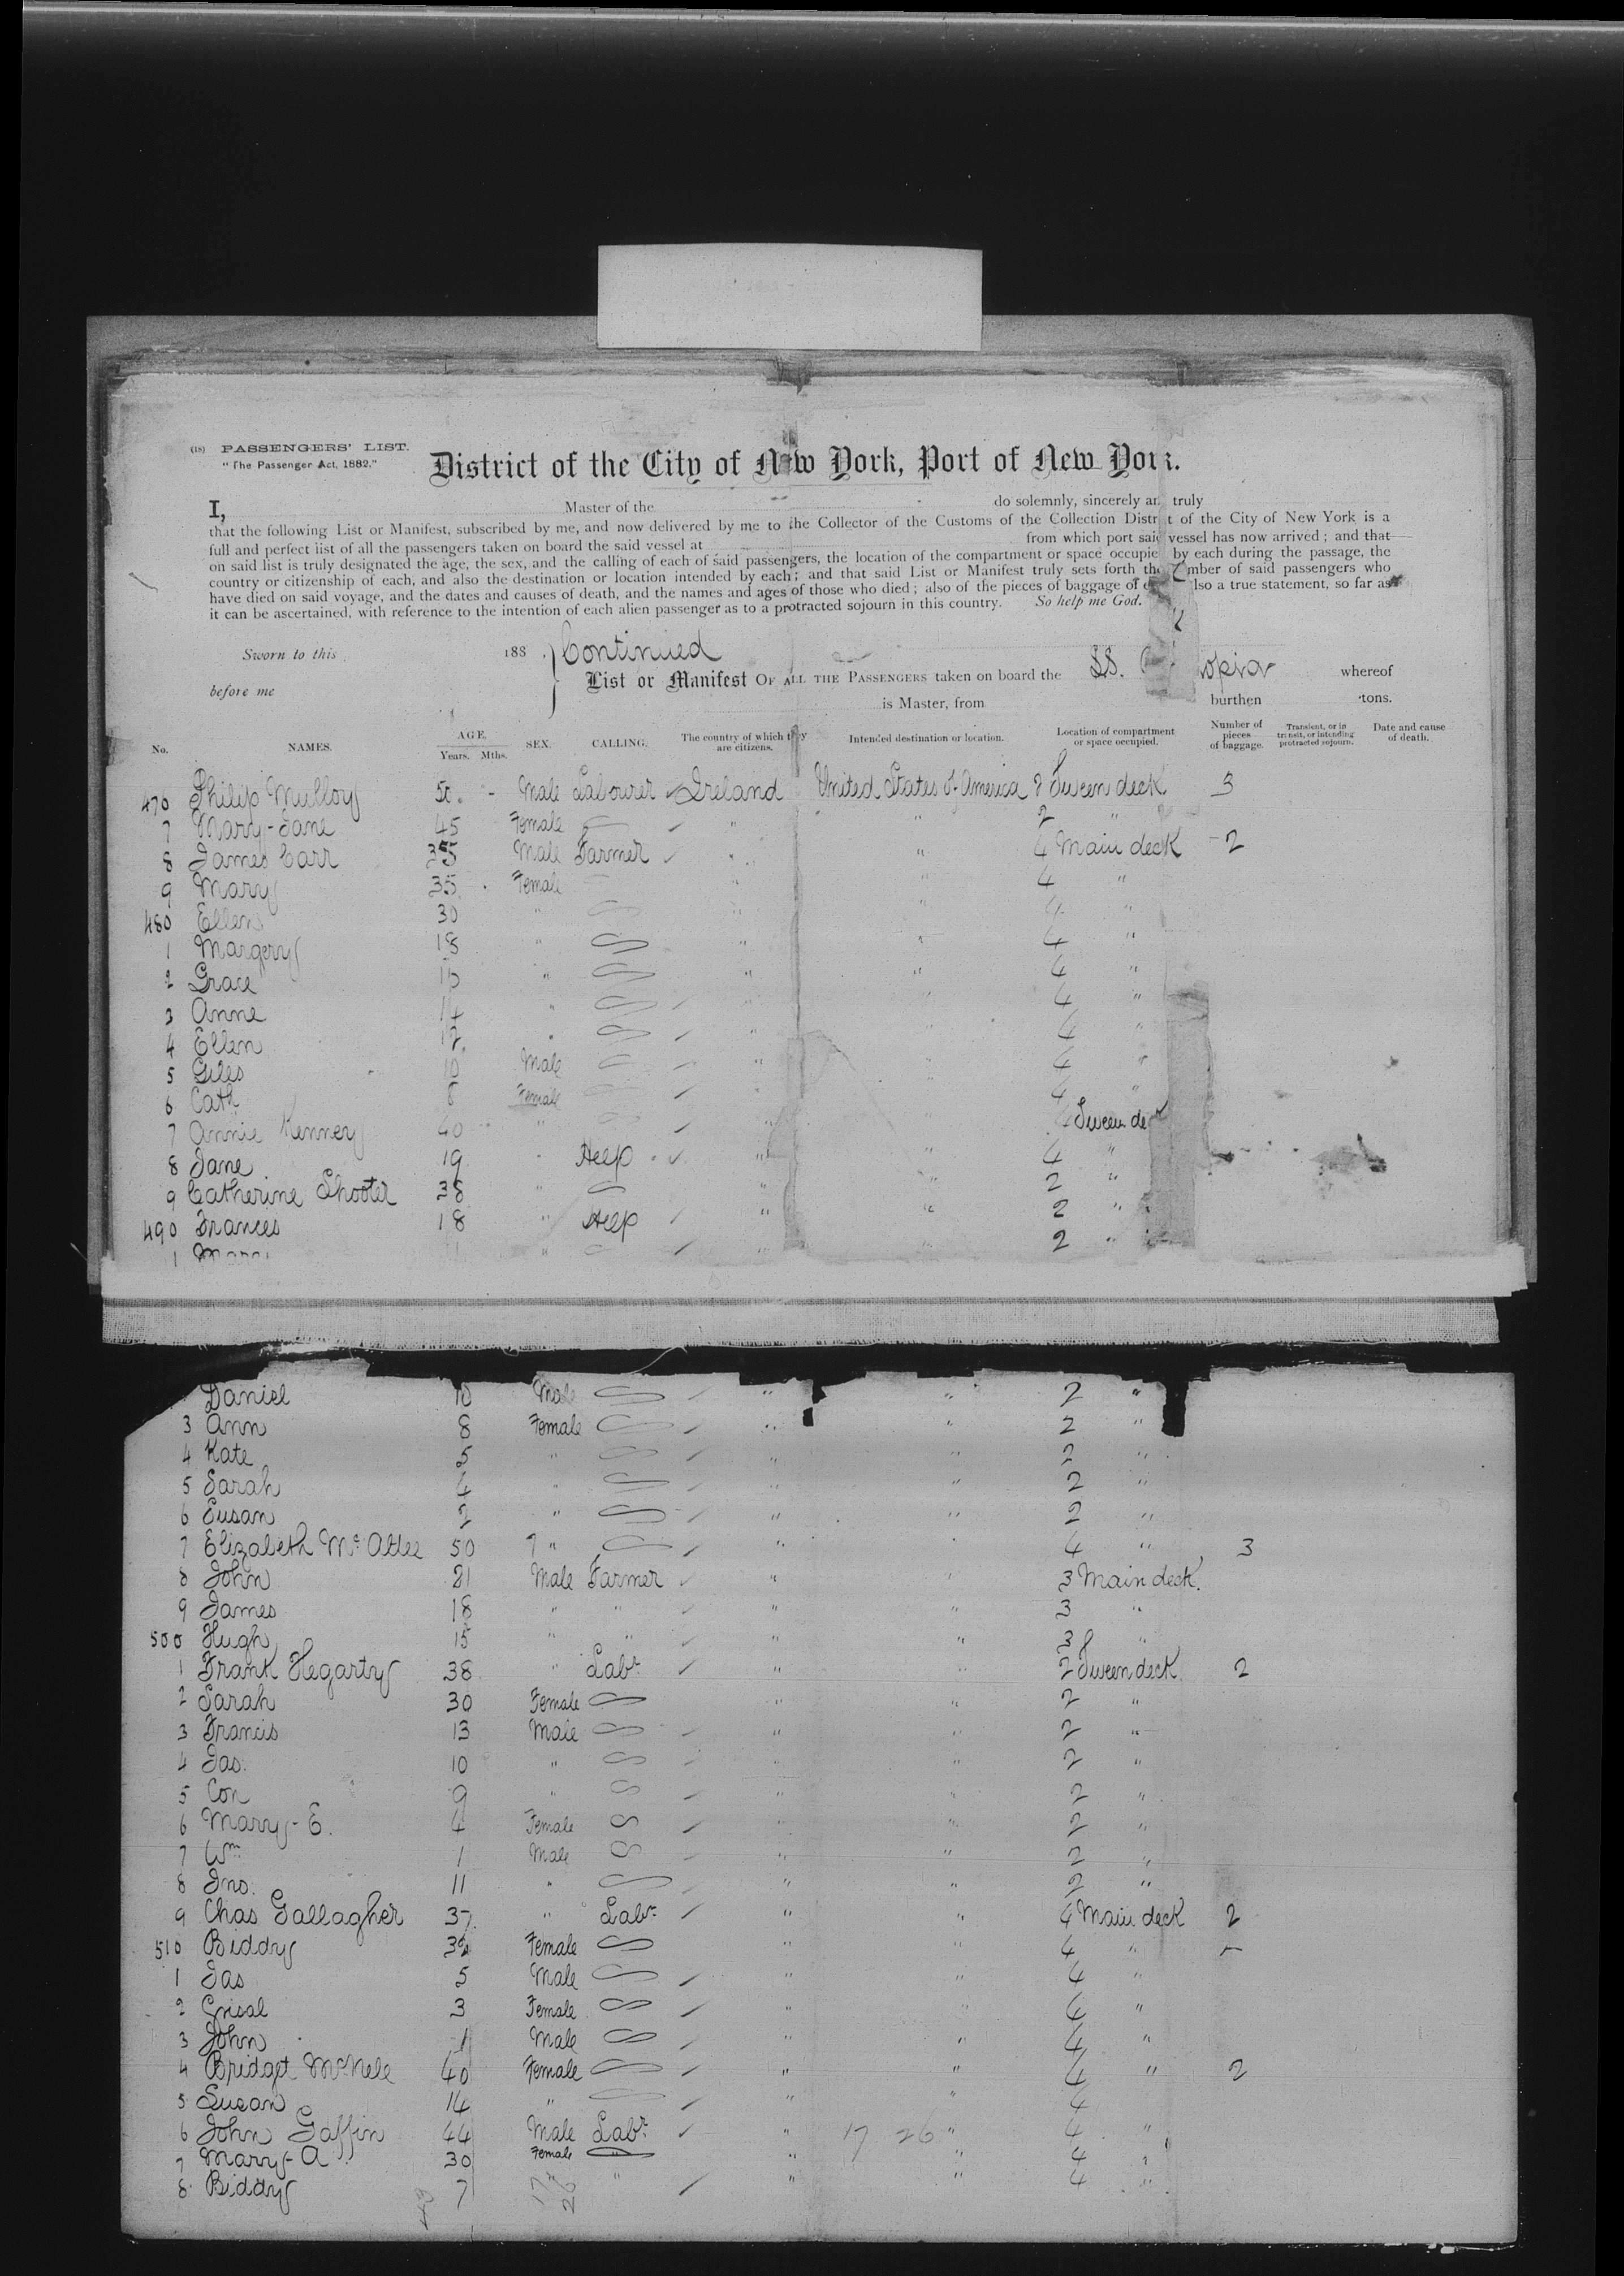 (18) PASSENGERS' LIST.
"The Passenger Act, 1882."
District of the City of New York, Port of New York.
I, Master of the do solemnly, sincerely and truly
that the following List or Manifest, subscribed by me, and now delivered by me to the Collector of the Customs of the Collection District of the City of New York is a
full and perfect list of all the passengers taken on board the said vessel at from which port said vessel has now arrived; and that
on said list is truly designated the age, the sex, and the calling of each of said passengers, the location of the compartment or space occupied by each during the passage, the
country or citizenship of each, and also the destination or location intended by each; and that said List or Manifest truly sets forth the number of said passengers who
have died on said voyage, and the dates and causes of death, and the names and ages of those who died; also of the pieces of baggage of also a true statement, so far as
it can be ascertained, with reference to the intention of each alien passenger as to a protracted sojourn in this country. So help me God.
Sworn to this 188 . Continued
before me List or Manifest OF ALL THE PASSENGERS taken on board the SS. opia whereof
is Master, from burthen tons.
No. NAMES. AGE. Years. Mths. SEX. CALLING. The country of which they are citizens. Intended destination or location. Location of compartment or space occupied. Number of pieces of baggage. Transient, or in transit, or intending protracted sojourn. Date and cause of death.
470 Philip Mulloy 50 - Male Labourer Ireland United States of America 2 Tween deck 3
7 Mary-Jane 45 Female " " 2 "
8 James Carr 35 Male Farmer " " 4 Main deck 2
9 Mary 35 Female " " 4 "
480 Ellen 30 " " " 4 "
1 Margery 18 " " " 4 "
2 Grace " " " 4 "
3 Anne 14 " " 4 "
4 Ellen 12 " " " 4 "
5 Giles 10 Male " " 4 "
6 Cath 8 Female " 4 "
7 Annie Kenney 40 " " " 4 Tween deck
8 Jane 19 " Help " " 4 "
9 Catherine Shooter 38 " " " 2 "
490 Frances 18 " Help " " 2 "
1 Mary " " " 2 "
Daniel 10 Male " " 2 "
3 Ann 8 Female " " 2 "
4 Kate 5 " " " 2 "
5 Sarah 4 " " " 2 "
6 Susan 2 " " " 2 "
7 Elizabeth Mc Atee 50 " " " 4 " 3
8 John 21 Male Farmer " " 3 Main deck.
9 James 18 " " " " 3 "
500 Hugh 15 " " " " 3 "
1 Frank Hegarty 38 " Labr " " 2 Tween deck 2
2 Sarah 30 Female " " 2 "
3 Francis 13 Male " " 2 "
4 Jas. 10 " " " 2 "
5 Con 9 " " " 2 "
6 Mary-E. 4 Female " " 2 "
7 Wm 1 Male " " 2 "
8 Jno. 11 " " " 2 "
9 Chas Gallagher 37 " Labr " " 4 Main deck 2
510 Biddy Female " " 4 "
1 Jas 5 Male " " 4 "
2 Grisal 3 Female " " 4 "
3 John 1 Male " " 4 "
4 Bridget McNele 40 Female " " 4 " 2
5 Susan 14 " " " 4
6 John Gaffin 44 Male Labr " 17 26 " 4 "
7 Mary-A 30 Female " " " 4 "
8 Biddy 7 " " " 4 "
17
26